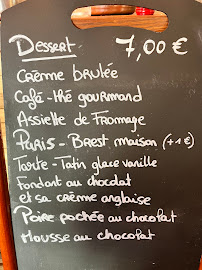 Dessert 7,00 €
Crème brulée
Café - thé gourmand
Assiette de Fromage
Paris - Brest maison (+1€)
Tarte - Tatin glace vanille
Fondant au chocolat
et sa crème anglaise
Poire pochée au chocolat
Mousse au chocolat